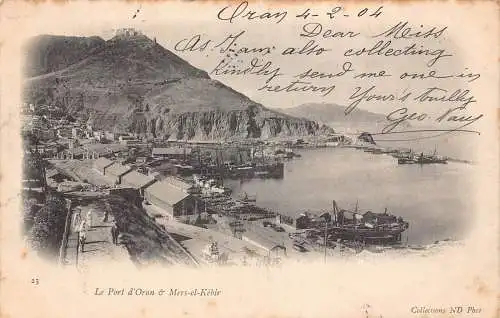 Oran 4-2-04
Dear Miss
As I am also collecting
kindly send me one in
return
Yours truly
Geo.
23
Le Port d'Oran & Mers-el-Kébir
Collections ND Phot